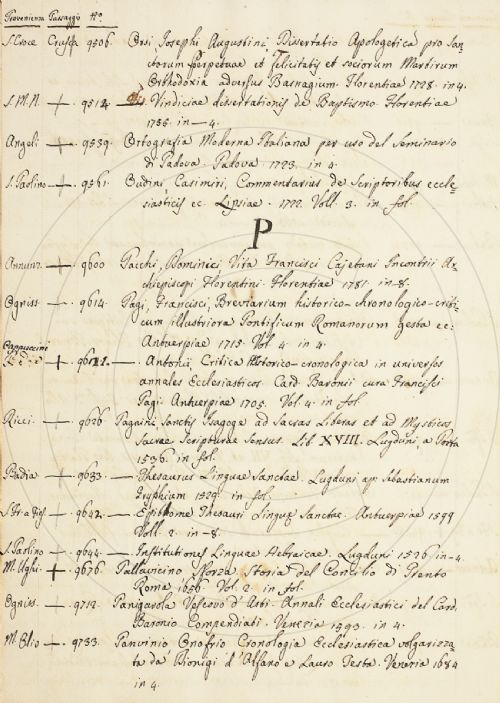 Provenienza Passaggio N.o
S. Croce Crusca 9506. Orsi Josephi Augustini, Dissertatio Apologetica pro San-
ctorum Perpetuae et Felicitatis et sociorum Martirum
Orthodoxia adversus Basnagium. Florentiae 1728. in 4.
S. M. N. + 9512. — Vindiciae dissertationis de Baptismo Florentiae
1735. in — 4.
Angeli + 9539. Ortografia Moderna Italiana per uso del Seminario
di Padova. Padova 1723. in 4.
S. Paolino — + 9561. Oudini, Casimiri, Commentarius de Scriptoribus eccle-
siasticis ec. Lipsiae. 1722. Voll. 3. in fol.
P
Annunz. — + 9600 Pacchi, Dominici Vita Francisci Cajetani Incontrii Ar-
chiepiscopi Florentini. Florentiae 1781. in-8.
Ogniss. — + 9614. Pagi, Francisci, Breviarium historico-chronologico-criti-
cum illustriora Pontificum Romanorum gesta ec:
Antuerpiae 1715. Vol. 4. in 4.
Cappuccini
+ 9621. — . Antonii, Critica historico-cronologica in universos
annales Ecclesiasticos Card. Baronii cura Francisci
Pagi. Antuerpiae 1705. Vol. 4. in fol.
Ricci. — + 9626. Pagnini Sanctis Isagoge ad Sacras Literas et ad Mysticos
Sacrae Scripturae Sensus. Lib. XVIII. Lugduni, a Porta
1536. in fol.
Badia — + 9633. — Thesaurus Linguae Sanctae. Lugduni ap: Sebastianum
Gryphium 1529. in fol.
+ 9642. — Epithome Thesauri Linguae Sanctae. Antuerpiae 1599
Voll. 2. in -8.
S. Paolino + 9644. — Institutiones Linguae Hebraicae. Lugduni 1526 in-4.
M. Ughi — + 9676. Pallavicino Sforza Storia del Concilio di Trento
Roma 1656. Vol. 2. in fol.
Ogniss. — + 9712. Panigarola Vescovo d'Asti. Annali Ecclesiastici del Card.
Baronio Compendiati. Venezia 1593. in 4.
M. Olio — + 9733. Panvinio Onofrio Cronologia Ecclesiastica volgarizza-
ta da Bionigi d'Alfano e Lauro Testa. Venezia 1684
in 4.